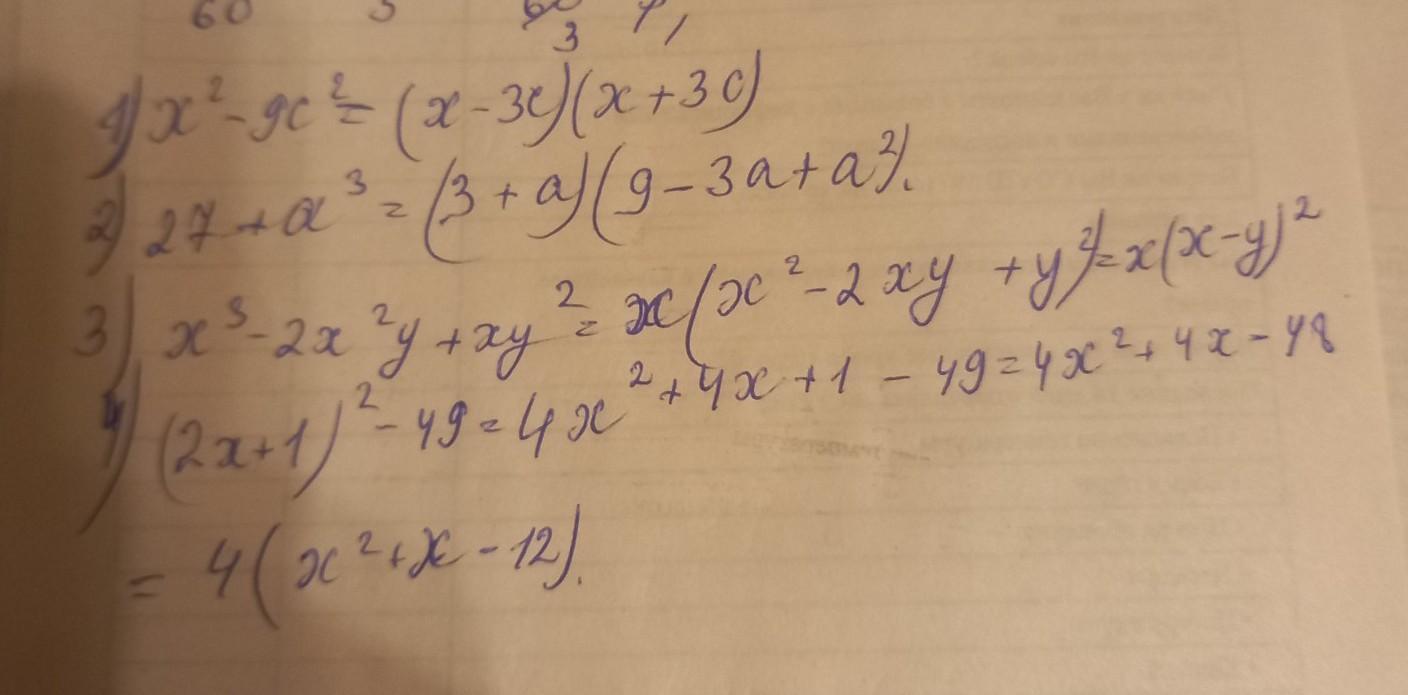 60 3 60 7,
3
1) x² - 9c² = (x - 3c)(x + 3c)
2) 27 + a³ = (3 + a)(9 - 3a + a²).
3) x³ - 2x²y + xy² = x(x² - 2xy + y²) = x(x - y)²
4) (2x + 1)² - 49 = 4x² + 4x + 1 - 49 = 4x² + 4x - 48
= 4(x² + x - 12).